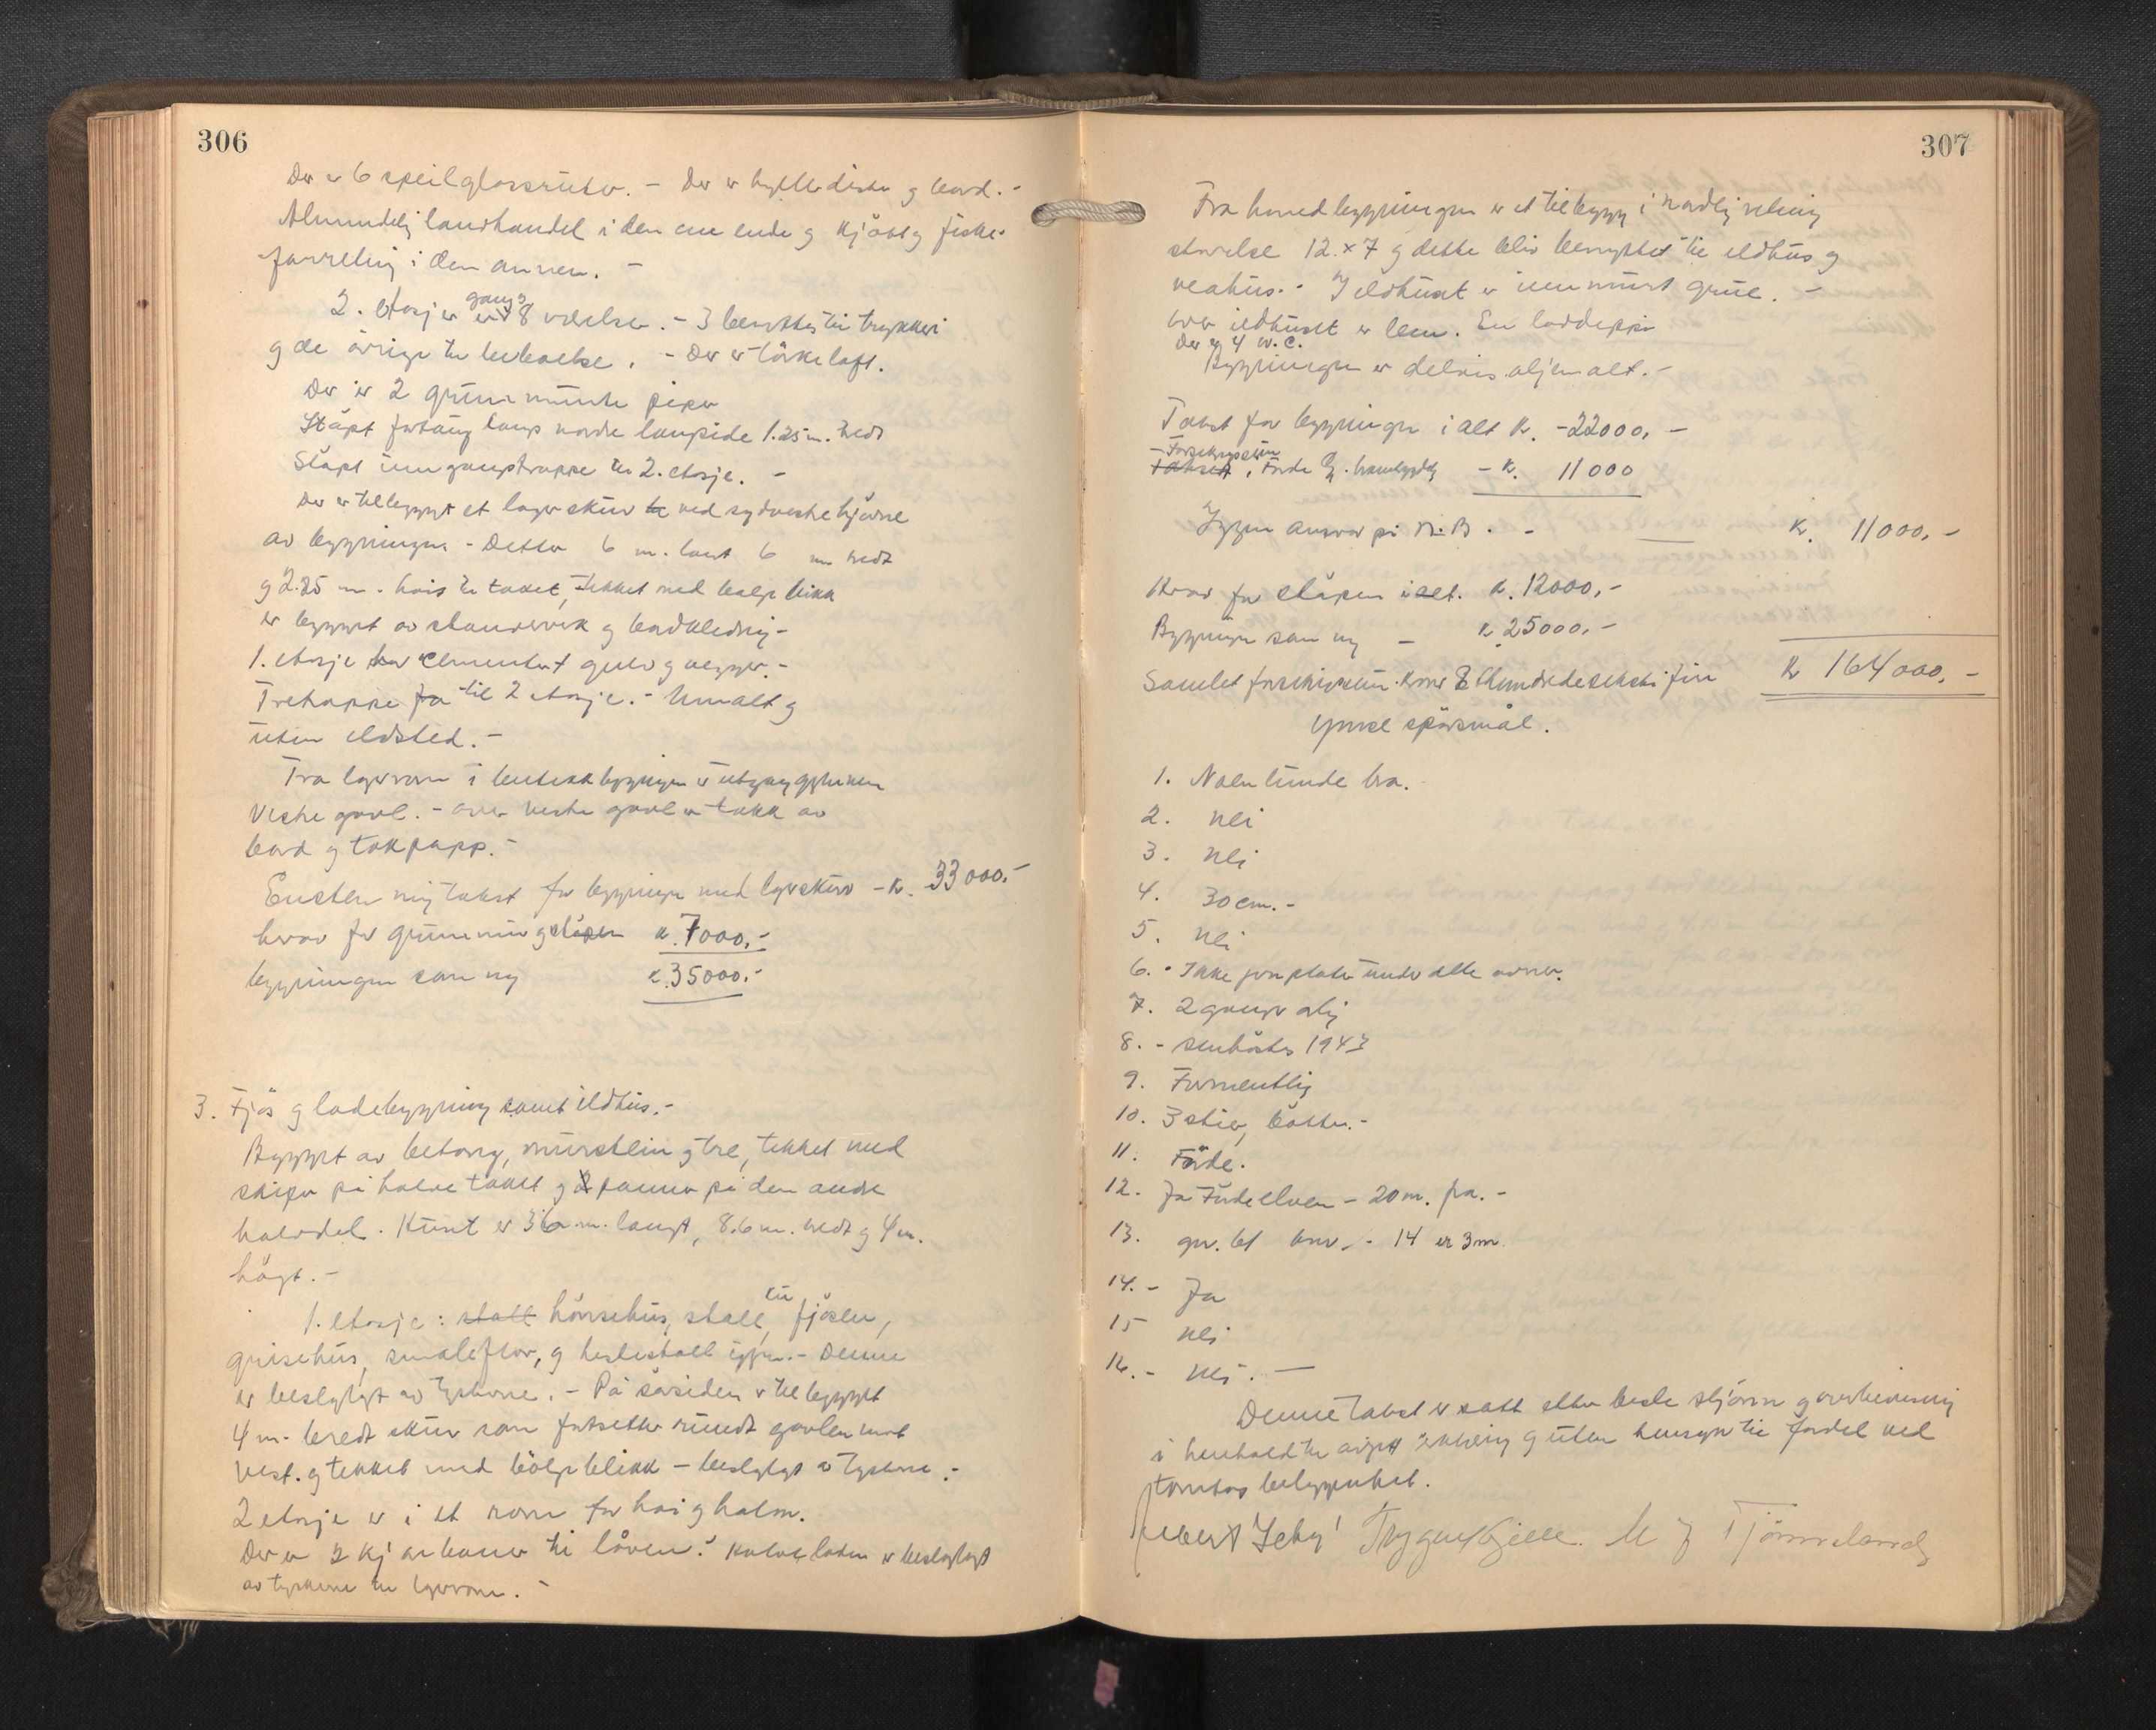 306
Der er 6 speilglassruter. - Der er hylle disker og bord. -
Almindelig landhandel i den ene ende og kjött og fiske-
forretning i den annen. -
2. etasje er gang og 8 værelser. - 3 benyttes til trykkeri
og de övrige til beboelse. - Der er törkeloft.
Der er 2 grunnmurte piper
Stöpt fortaug langs nordre langside 1.25 m. bredt
Stöpt inngangstrappe til 2. etasje. -
Der er tilbygget et lagerskur ved sydvestre hjörne
av bygningen - Dette er 6 m. langt 6 m. bredt
og 2.25 m. höit til taket, tekket med bölgeblikk
er bygget av stenderverk og bordkledning -
1. etasje har cementert gulv og vegger. -
Tretrappe fra til 2 etasje. - Umalt og
uten ildsted. -
Fra lagerrom i butikkbygningen er utgang gjennem
vestre gavl. - over vestre gavl er takk av
bord og takpapp. -
Enstemmig takst for bygningen med lagerskur - kr. 33000.-
herav for grunnmur og stöpen kr. 7000,-
bygningen som ny kr. 35000.-
3. Fjös og ladebygning samt ildhus. -
Bygget av betong, murstein og tre, tekket med
skifer på halve taket og panner på den andre
halvdel. Huset er 36 m. langt, 8.6 m. bredt og 4 m.
högt. -
1. etasje: stall hönsehus, stall, til fjöslu,
grisehus, smaleflor, og hestestall igjen. - Denne
er beslaglagt av tyskerne. - På sörsiden er tilbygget
4 m. bredt skur som fortsetter rundt gavlen mot
vest. og tekket med bölgeblikk - beslaglagt av tyskerne. -
2 etasje er i et rom for höi og halm.
Der er 2 kjörebruer til låven. Halve laden er beslaglagt
av tyskerne til lagerrom. -
307
Fra hovedbygningen er et tilbygg i nordlig retning
störrelse 12 x 7 og dette blir benyttet til ildhus og
vedhus. - I ildhuset er innmurt grue. -
over ildhuset er lem. En
Der er 4 w.c.
Bygningen er delvis oljemalt. -
Takst for bygningen i alt kr. - 22000. -
Forsikringssum
Taksert i Förde - kr. 11000
Ingen ansvar på N.B. - kr. 11000,-
Herav for stöpen i alt. kr. 12000,-
Bygningen som ny - kr. 25000,-
Samlet forsikringssum kroner Ethundredesekstifire kr 164000,-
Ymse spörsmål.
1. Noenlunde bra.
2. nei
3. nei
4. 30 cm. -
5. nei
6. - Ikke jernplater under alle ovner.
7. 2 ganger årlig
8. - senhöstes 1943
9. Formentlig
10. 3 stiger, bötter. -
11. Förde.
12. Ja Fördeelven - 20 m. fra. -
13. gr. bl bnr. - 14 er 3 m.
14. - Ja
15 nei
16. - nei. -
Denne takst er satt etter beste skjönn og overbevisning
i henhold til avgitt erklæring og uten hensyn til fordel ved
tomtas beliggenhet.